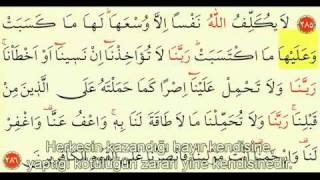 ﴿٢٨٥﴾ لَا يُكَلِّفُ اللّٰهُ نَفْسًا اِلَّا وُسْعَهَاۜ لَهَا مَا كَسَبَتْ
وَعَلَيْهَا مَا اكْتَسَبَتْۜ رَبَّنَا لَا تُؤَاخِذْنَٓا اِنْ نَس۪ينَٓا اَوْ اَخْطَأْنَاۚ
رَبَّنَا وَلَا تَحْمِلْ عَلَيْنَٓا اِصْرًا كَمَا حَمَلْتَهُ عَلَى الَّذ۪ينَ مِنْ
قَبْلِنَاۚ رَبَّنَا وَلَا تُحَمِّلْنَا مَا لَا طَاقَةَ لَنَا بِه۪ۚ وَاعْفُ عَنَّا۠ وَاغْفِرْ
لَنَا۠ وَارْحَمْنَا۠ اَنْتَ مَوْلٰينَا فَانْصُرْنَا عَلَى الْقَوْمِ الْكَافِر۪ينَ ﴿٢٨٦﴾
Herkesin kazandığı hayır kendisine,
yaptığı kötülüğün zararı yine kendisinedir.